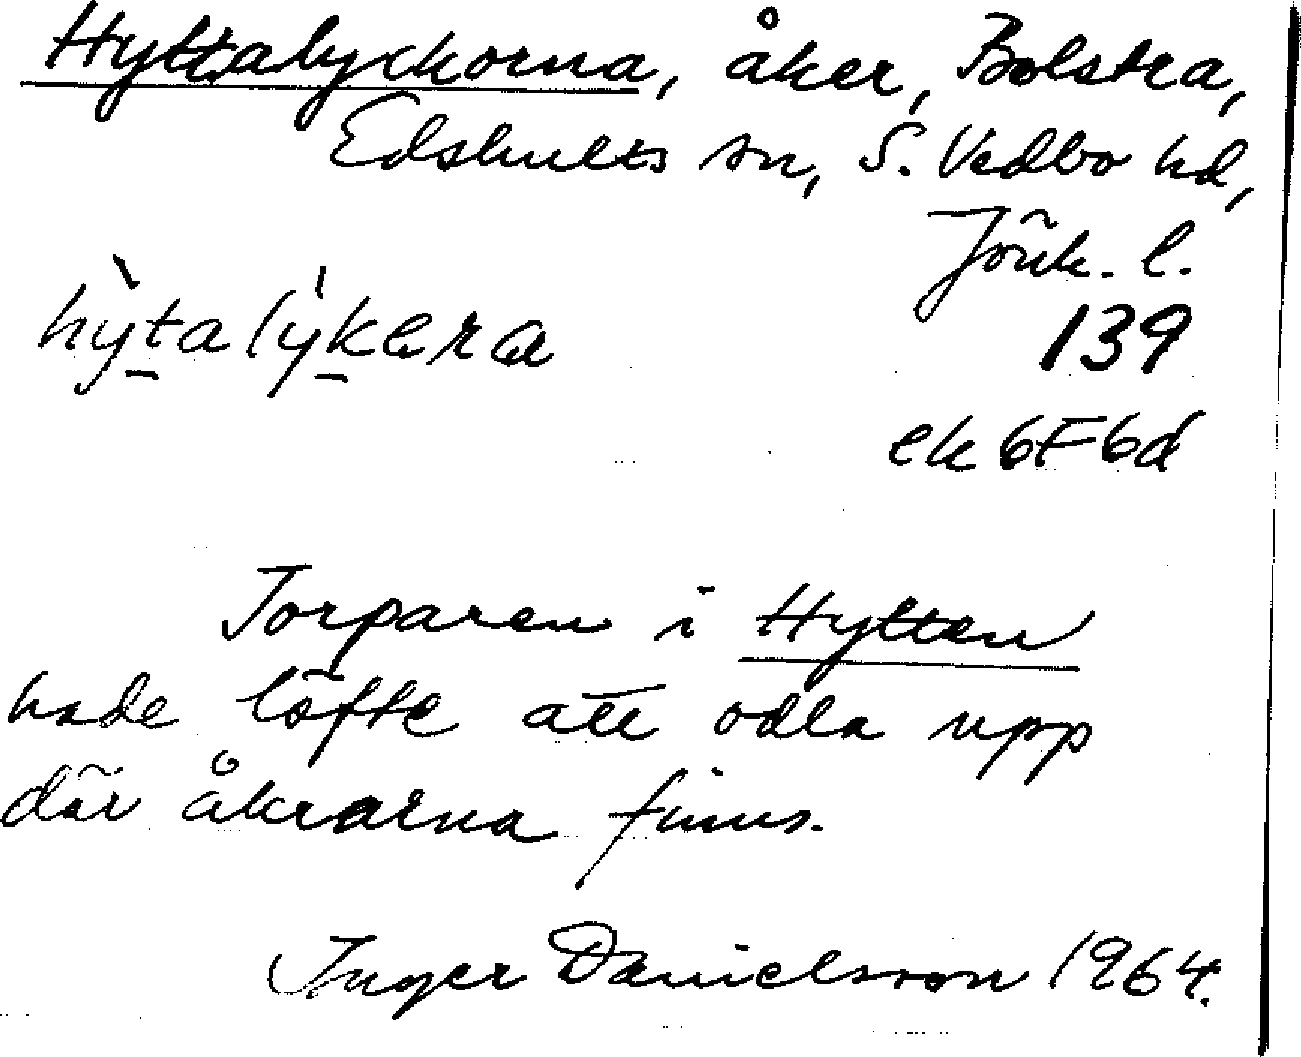 Hyttalyckorna, åker, Bolstra,
Edshults sn, S. Vedbo hd,
Jönk. l.
hỳtalỳkera
139
ek 6F6d
Torparen i Hytten
hade löfte att odla upp
där åkrarna finns.
Inger Danielsson 1964.